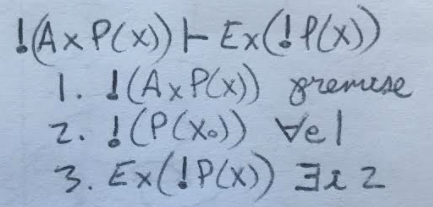 !(Ax P(x)) ⊢ Ex(!P(x))
1. !(Ax P(x)) premise
2. !(P(x₀)) ∀e 1
3. Ex(!P(x)) ∃i 2